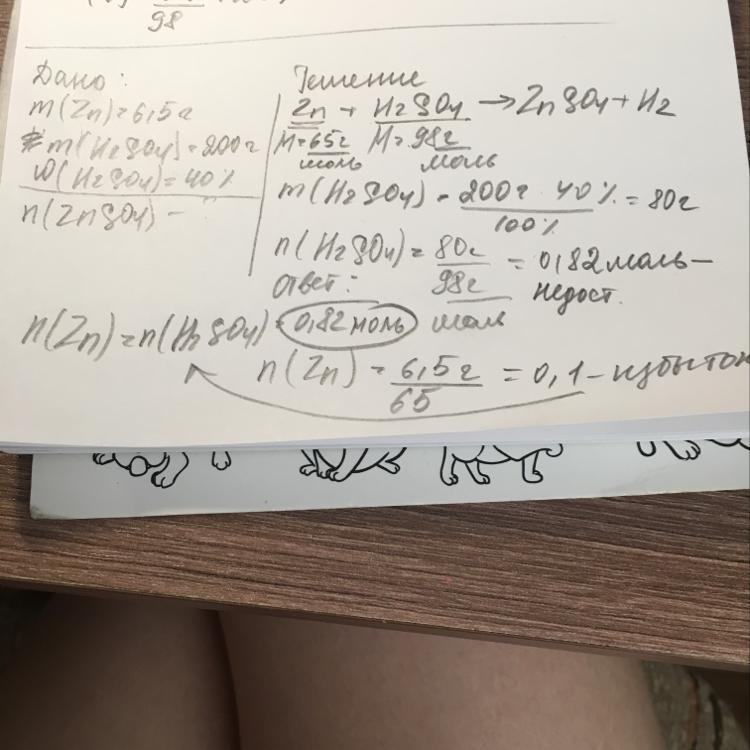 98
Дано:
m(Zn)=6,5г
m(H2SO4)=200г
ω(H2SO4)=40%
n(ZnSO4) -
Решение
Zn + H2SO4 → ZnSO4 + H2
M=65г/моль M=98г/моль
m(H2SO4) = 200г · 40% / 100% = 80г
n(H2SO4) = 80г / 98г/моль = 0,82 моль – недост.
Ответ:
n(Zn)=n(H2SO4)=0,82 моль
n(Zn) = 6,5г / 65 = 0,1 – избыток